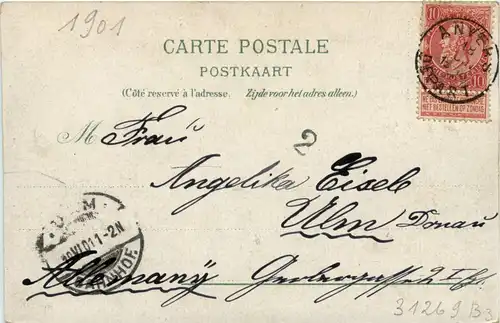 1901
10
10
ANVERS
NIET BESTELLEN OP ZONDAG
CARTE POSTALE
POSTKAART
(Côté reservé à l'adresse. Zijde voor het adres alleen.)
M Frau
2
Angelika Eisele
Ulm Donau
ULM
1-2N
BAHNHOF
Allemany
31269 B3